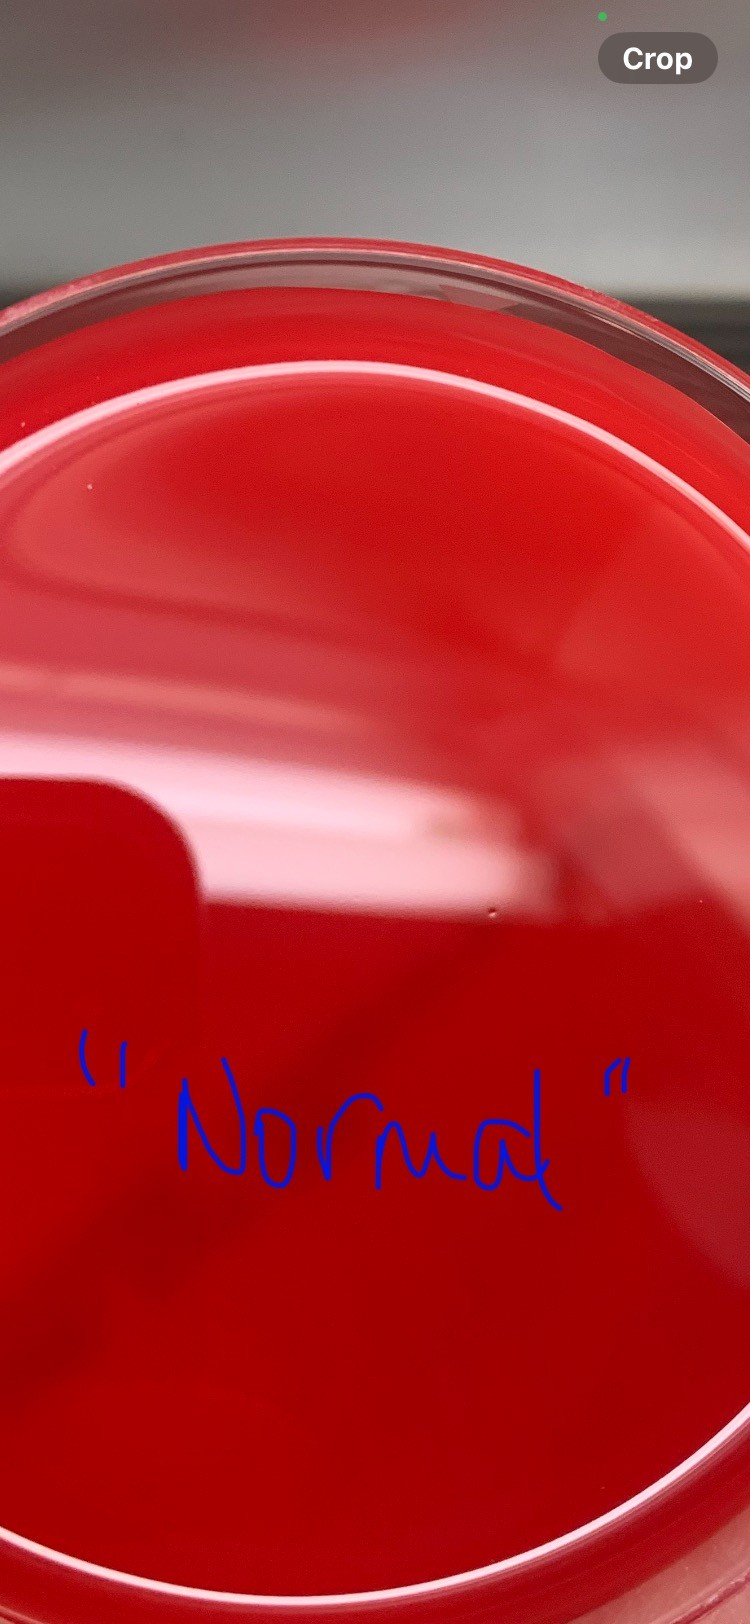 Crop
"Normal"